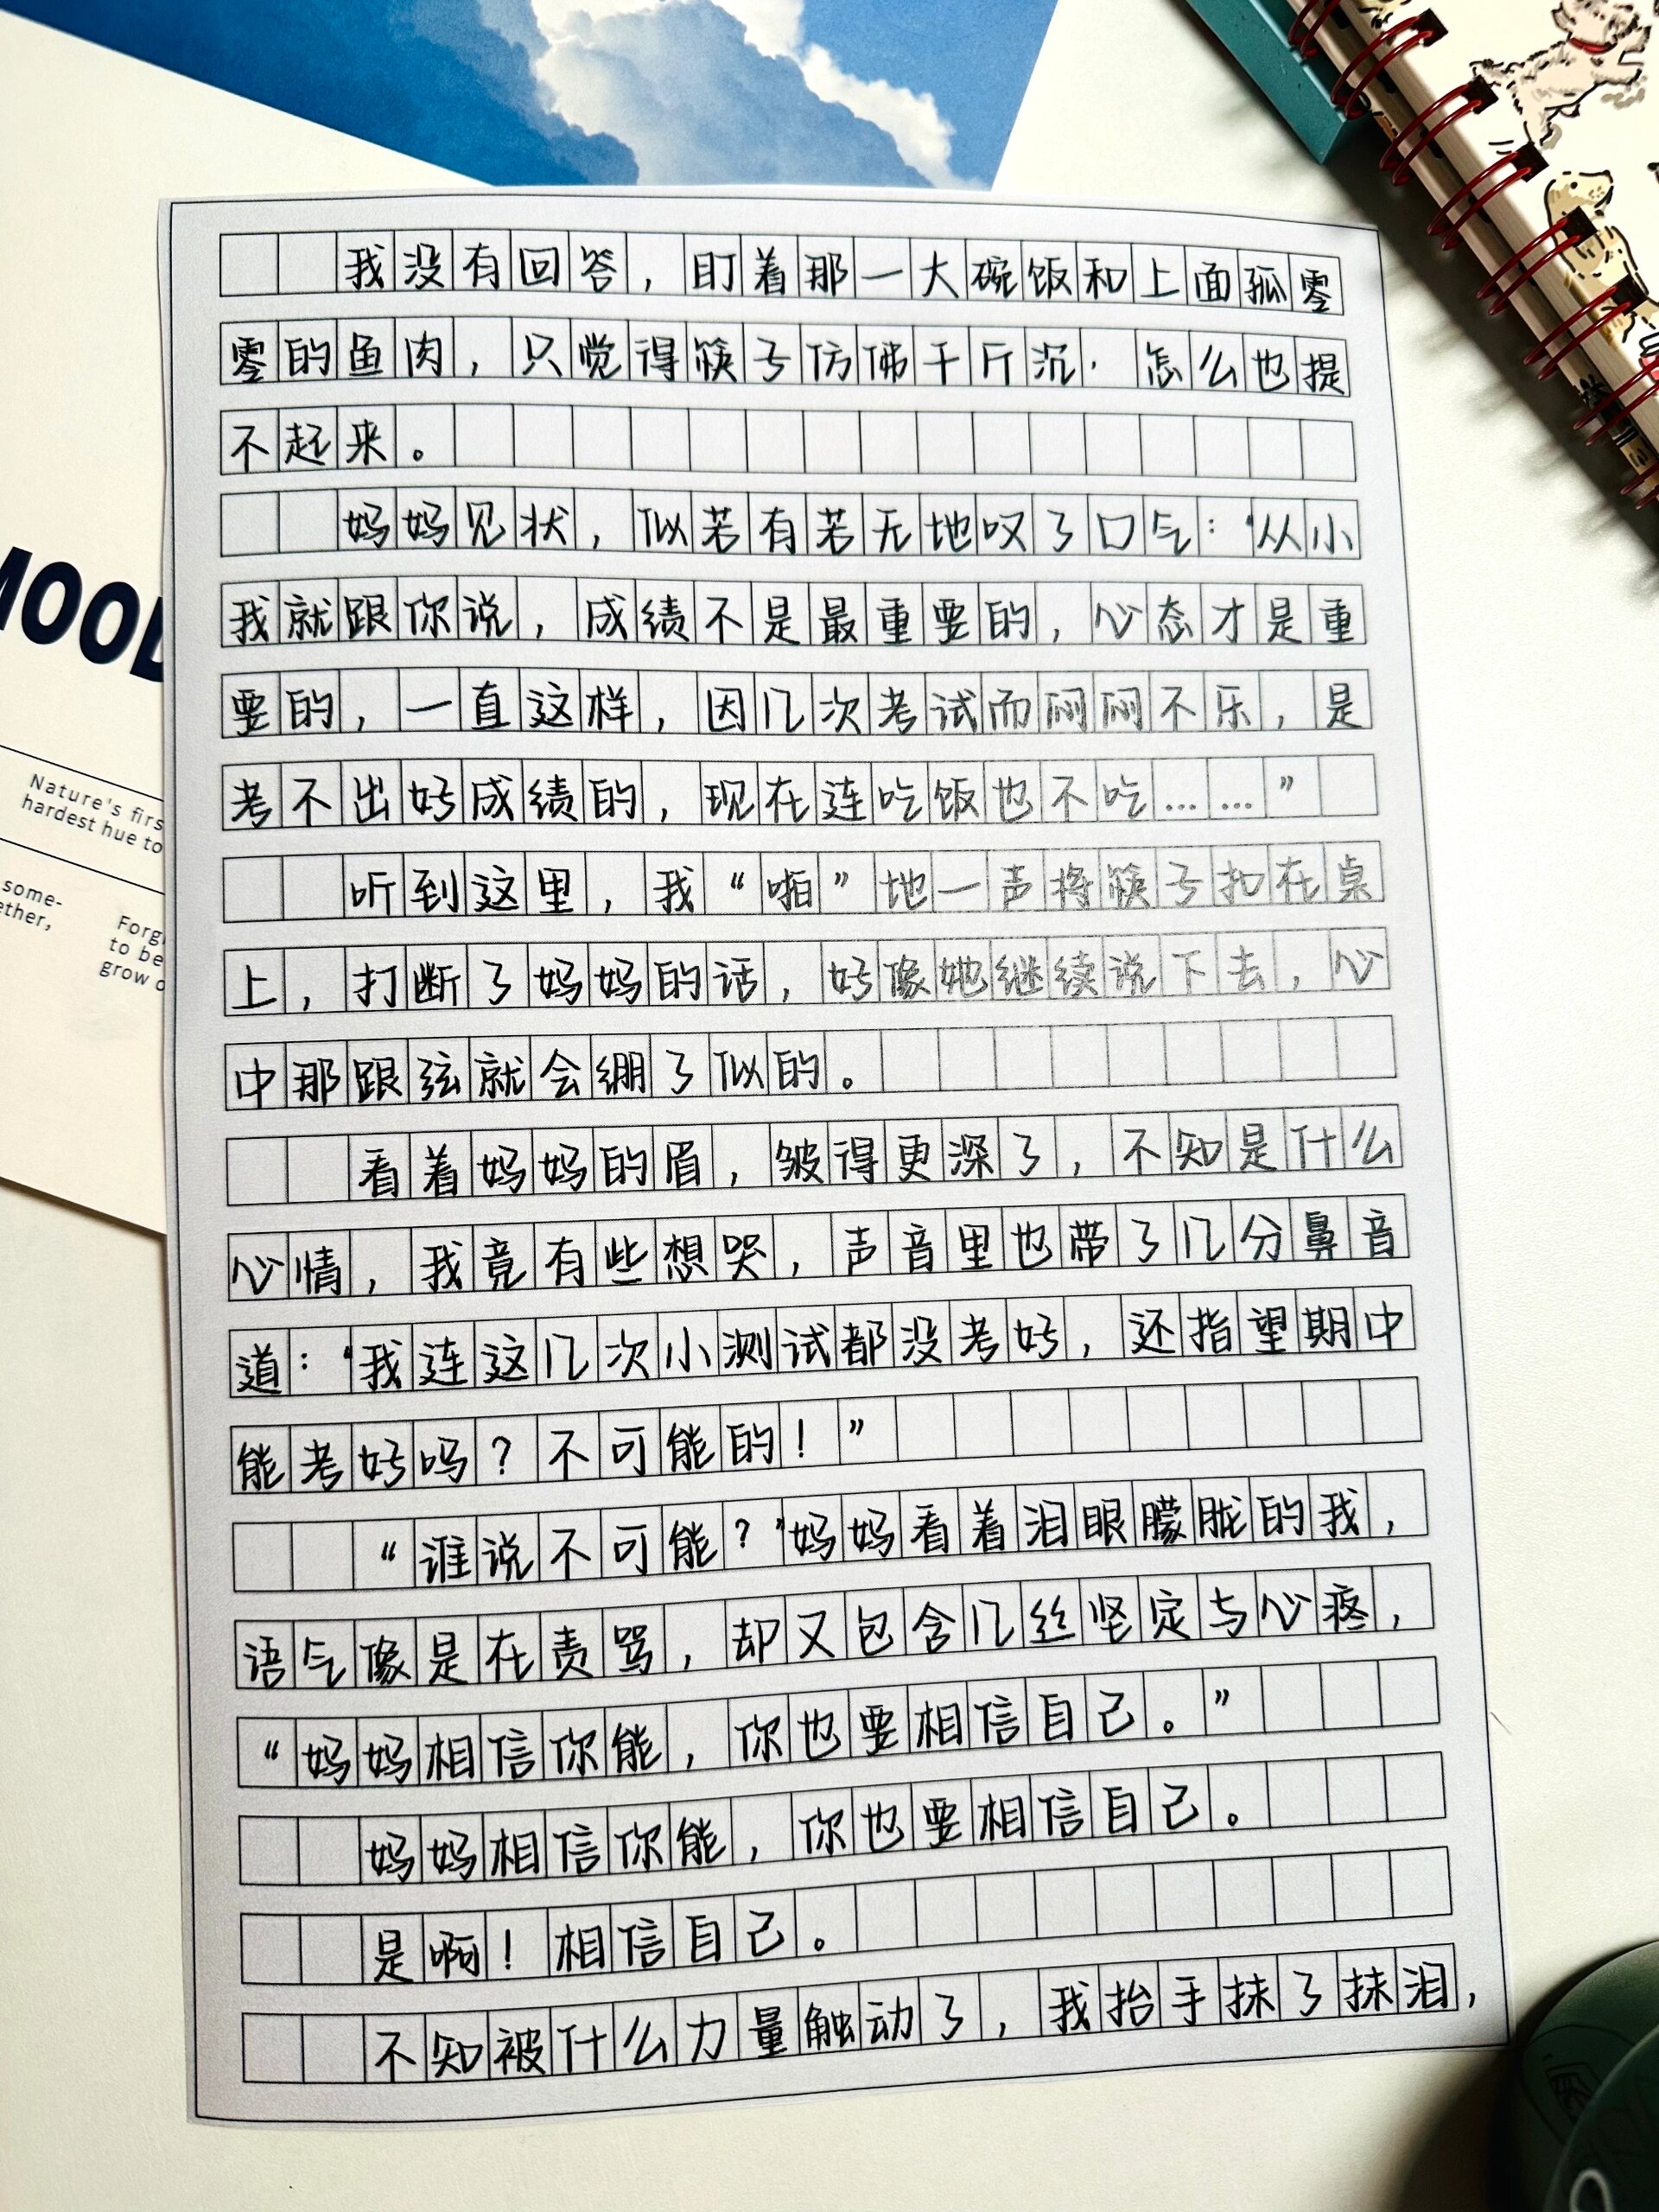 MOOD
Nature's firs
hardest hue to
some-
ether,
Forg
to be
grow
我没有回答，盯着那一大碗饭和上面孤零
零的鱼肉，只觉得筷子仿佛千斤沉，怎么也提
不起来。
妈妈见状，似若有若无地叹了口气：“从小
我就跟你说，成绩不是最重要的，心态才是重
要的，一直这样，因几次考试而闷闷不乐，是
考不出好成绩的，现在连吃饭也不吃……”
听到这里，我“啪”地一声将筷子扣在桌
上，打断了妈妈的话，好像她继续说下去，心
中那跟弦就会绷了似的。
看着妈妈的眉，皱得更深了，不知是什么
心情，我竟有些想哭，声音里也带了几分鼻音
道：“我连这几次小测试都没考好，还指望期中
能考好吗？不可能的！”
“谁说不可能？”妈妈看着泪眼朦胧的我，
语气像是在责骂，却又包含几丝坚定与心疼，
“妈妈相信你能，你也要相信自己。”
妈妈相信你能，你也要相信自己。
是啊！相信自己。
不知被什么力量触动了，我抬手抹了抹泪，